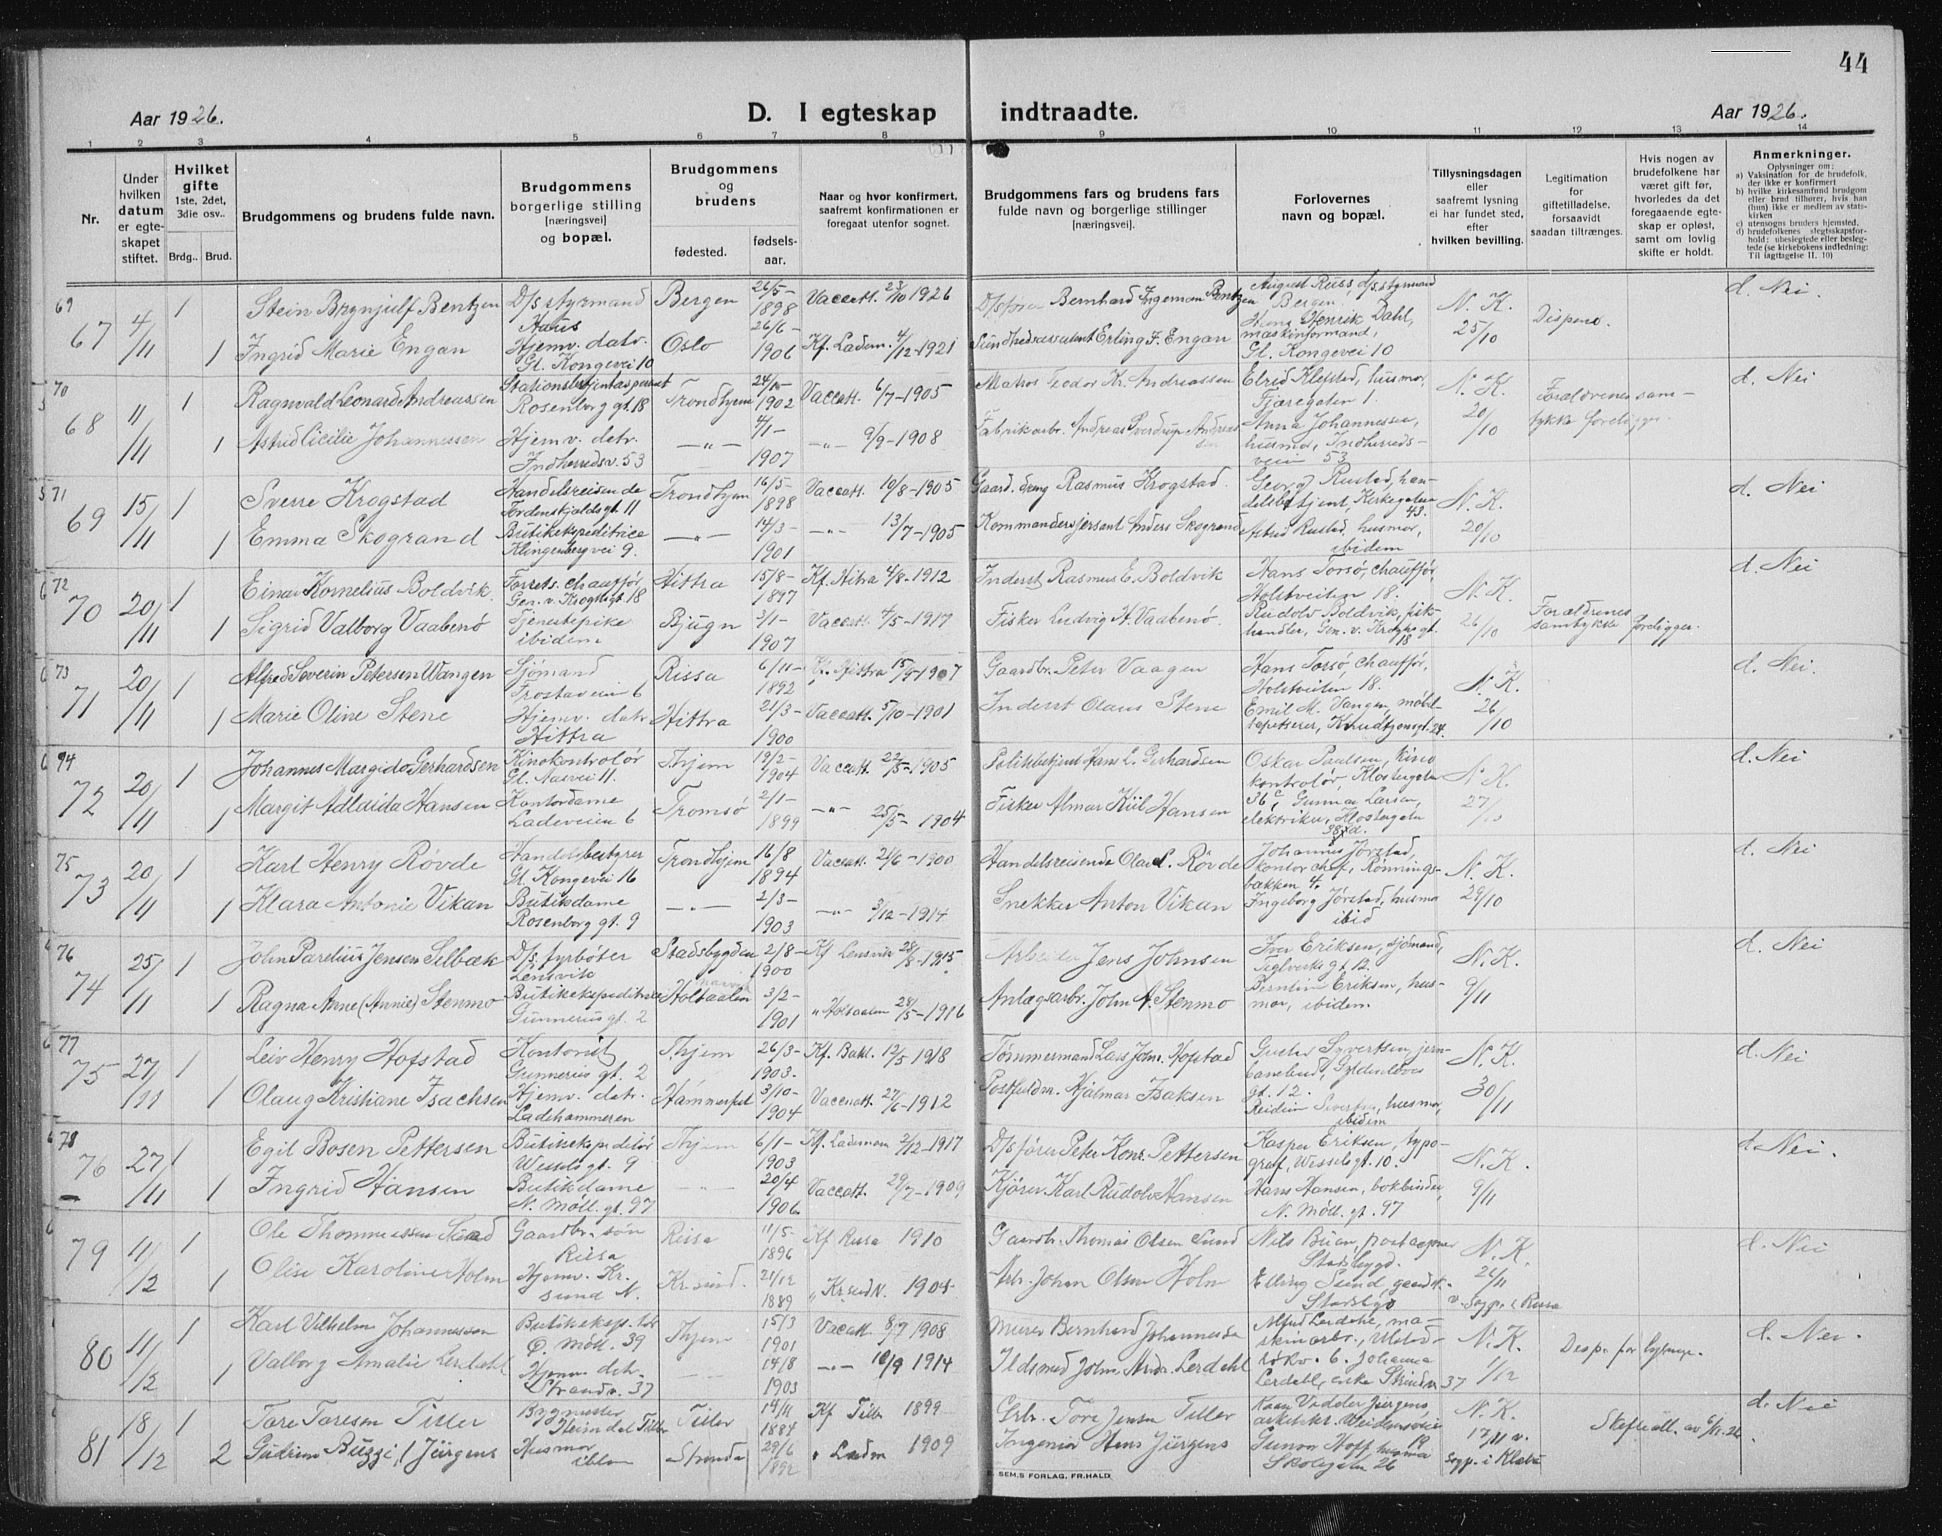 44
Aar 1926.
D. I egteskap indtraadte.
Aar 1926.
1 2 3 4 5 6 7 8 9 10 11 12 13 14
Nr.
Under hvilken datum er egteskapet stiftet.
Hvilket gifte 1ste, 2det, 3die osv..
Brdg.. Brud.
Brudgommens og brudens fulde navn.
Brudgommens borgerlige stilling [næringsvei] og bopæl.
Brudgommens og brudens
fødested. fødsels-aar.
Naar og hvor konfirmert, saafremt konfirmationen er foregaat utenfor sognet.
Brudgommens fars og brudens fars fulde navn og borgerlige stillinger [næringsvei].
Forlovernes navn og bopæl.
Tillysningsdagen eller saafremt lysning ei har fundet sted, efter hvilken bevilling.
Legitimation for giftetilladelse, forsaavidt saadan tiltrænges.
Hvis nogen av brudefolkene har været gift før, hvorledes da det foregaaende egteskap er opløst, samt om lovlig skifte er holdt.
Anmerkninger.
Oplysninger om:
a) Vaksination for de brudefolk, der ikke er konfirmert
b) hvilke kirkesamfund brudgom eller brud tilhører, hvis han (hun) ikke er medlem av statskirken
c) utensogns bruders hjemsted.
d) brudefolkenes slegtsskapsforhold; ubeslegtede eller beslegtede (se kirkebokens indledning: Til iagttagelse II. 10)
69 67 4/11 1 Stein Brynjulf Bentzen D/s styrmand Bergen 26/5-1898 Vaccatt. 23/10 1926 D/sfører Bernhard Ingeman Bentzen August Russ, d/s.styrmand Bergen, N. K. 25/10 Dispens. d. Nei.
1 Ingrid Marie Engan Hjemv. datr. Gl. Kongevei 10 Oslo 26/6-1906 Kf. Ladem. 4/12-1921 Erling F. Engan Hans Henrik Dahl, maskinformand, Gl. Kongevei 10
70 68 11/11 1 Ragnvald Leonard Andreassen Rosenborg gt. 18 Trondhjem 24/10-1902 Vaccatt. 6/7-1905 Matros Teodor Kr. Andreassen Elrid Klefstad, husmor, Fjæregaten 1. N. K. 20/10 Forældrenes samtykke foreligger. d. Nei
1 Astrid Cicilie Johannessen Hjemv. datr. Indherredsv. 53 —"— 4/1-1907 —"— 9/9-1908 Fabrikarbr. Andreas Sverdrup Anna Johannessen, husmor, Indherredsveien 53
71 69 15/11 1 Sverre Krogstad Handelsreisende Tordenskjoldsgt. 11 Trondhjem 16/5-1898 Vaccatt. 10/8-1905 Rasmus Krogstad. Georg Rustad, handelsbetjent, Kirkegaten 43. N. K. 20/10 d. Nei
1 Emma Skogrand Butikekspeditrice Klingenbergvei 9. —"— 14/3-1901 —"— 13/7-1905 Kommandersjersant Anders Skogrand Astrid Rustad, husmor, ibidem
72 70 20/11 1 Einar Kornelius Boldvik. Forrets. chauffør, Gen. v. Kroghs gt. 18 Hittra 15/8-1897 Kf. Hitra 4/8-1912 Inderst Rasmus E. Boldvik Hans Torsø, chauffør, Holstveiten 18. N. K. 26/10 Forældrenes samtykke foreligger. d. Nei
1 Sigrid Valborg Vaabenø Tjenestepike ibidem Bjugn 3/1-1907 Vaccatt. 4/5-1917 Fisker Ludvig H. Vaabenø. Rudolv Boldvik, fiskhandler, Gen. v. Kroghs gt. 18
73 71 20/11 1 Alfred Severin Petersen Wangen Sjømand Frostaveien 6 Rissa 6/11-1892 Kf. Hittra 15/9-1907 Gaardbr. Peter Vaagen Hans Torsø, chauffør, Holstveiten 18. N. K. 26/10 d. Nei.
1 Marie Oline Stene Hjemv. datr. Hittra Hittra 21/3-1900 Vaccatt. 5/10-1901 Inderst Olaus Stene Emil M. Vangen, møbeltapetserer, Knudtzonsgt. 24.
6 94 72 20/11 1 Johannes Margido Gerhardsen Kinokontrolør Gl. Aasvei 11. Thjem 19/2-1904 Vaccatt. 22/5-1905 Politibetjent Hans L. Gerhardsen Oskar Paulsen, kinokontrolør, Klostergaten 36c, N. K. 27/10 d. Nei
1 Margit Adlaida Hansen Kontordame Ladeveien 6 Tromsø 2/1-1899 —"— 25/5-1904 Fisker Almar Kiil Hansen Gunnar Larsen, elektriker, Klostergaten 38d.
75 73 20/11 1 Karl Henry Røvde Handelsbestyrer Gl. Kongevei 16 Trondhjem 16/8 1894 Vaccatt. 21/6-1900 Handelsreisende Olav L. Røvde Johannes Jørstad, kontorchef, Rønningsbakken 4. N. K. 29/10 d. Nei
1 Klara Antonie Vikan Butikdame Rosenborg gt. 9 —"— 2/3-1903 —"— 3/12-1914 Snekker Anton Vikan Ingeborg Jørstad, husmor ibid
76 74 25/11 1 John Parelius Jensen Selbæk D/s. fyrbøter Lensvik Stadsbygden 2/8-1900 Kf. Lensvik 28/8-1915 Arbeider Jens Johnsen Iver Eriksen, sjømand, Teglverksgt. 12. N. K. 9/11 d. Nei
1 Ragna Anne (Annie) Stenmo Butikekspeditrice Gunnerius gt. 2 Holtaalen 3/2-1901 " Holtaalen 28/5-1916 Anlægsarbr. John A. Stenmo Berntine Eriksen, husmor, ibidem.
77 75 27/11 1 Leiv Henry Hofstad Kontorist Gunnerius gt. 2 Thjem 26/3-1903. Kf. Bakl. 12/5 1918 Tømmermand Lars Johs. Hofstad Gustav Syvertsen, jernbanebud, Gyldenløves gt. 12. N. K. 30/11 d. Nei
1 Olaug Kristiane Isachsen Hjemv. datr. Ladehammeren Hammerfest 3/10-1904 Vaccatt. 27/6-1912 Postfuldm. Hjalmar Isaksen husmor, ibidem
78 76 27/11 1 Egil Bosen Pettersen Butikekspeditør Wesselsgt. 9 Thjem 6/1-1903 Kf. Lademoen 2/12-1917 D/sfører Peter Konr. Pettersen Kasper Eriksen, typograf, Wesselsgt. 10. N. K. 9/11 d. Nei.
1 Ingrid Hansen Butikdame N. Møll. gt. 97 —"— 20/4 1906 Vaccatt. 29/7-1909 Kjører Karl Rudolv Hansen Hans Hansen, bokbinder, N. Møll. gt. 97
79 11/12 1 Ole Thommessen Sund Gaardbr. søn Rissa Rissa 11/5-1896 Kf Rissa 1910 Gaardbr. Thomas Olsen Sund Nils Buan, postaapner Stadsbygd. N. K. 26/11 d. Nei
1 Olise Karoline Holm Hjemv. Kr. sund N. Kr.sund. 21/12 1889 " Kr.sund N. 1904 Arb. Johan Olsen Holm Elling Sund, gaardbr. Stadsbygd v. Sogp. i Rissa
80 11/12 1 Karl Vilhelm Johannessen Ø. Møll. 39 Thjem 15/3 1901 Vacatt 8/7 1908 Murer Bernhard Johannessen Alfred Lerdahl, maskinarb., N. K. 1/12 d. Nei.
1 Valborg Amalie Lerdahl Hjemv. datr. Strandv. 37 —"— 14/8 1903 —"— 10/9 1914 Ildsmed Johs. Lerdahl Johanna Lerdahl, enke Strindv. 37
81 18/12 Tore Toresen Tiller Bygmester Heimdal Tiller Tiller 19/11 1884 Kf Tiller 1899 Grbr. Tore Jensen Tiller arkitekt N. K. 17/11 v. Sogp. i Klæbu d. Nei
2 Gudrun Buzzi, f. Jürgens Husmor ibidem Strinda 29/6 1892 " Ladem 1909 Ingeniør Hans Jürgens Gunvor Hoff, husmor Skolegaten 26
E. SEM.S FORLAG, FR.HALD